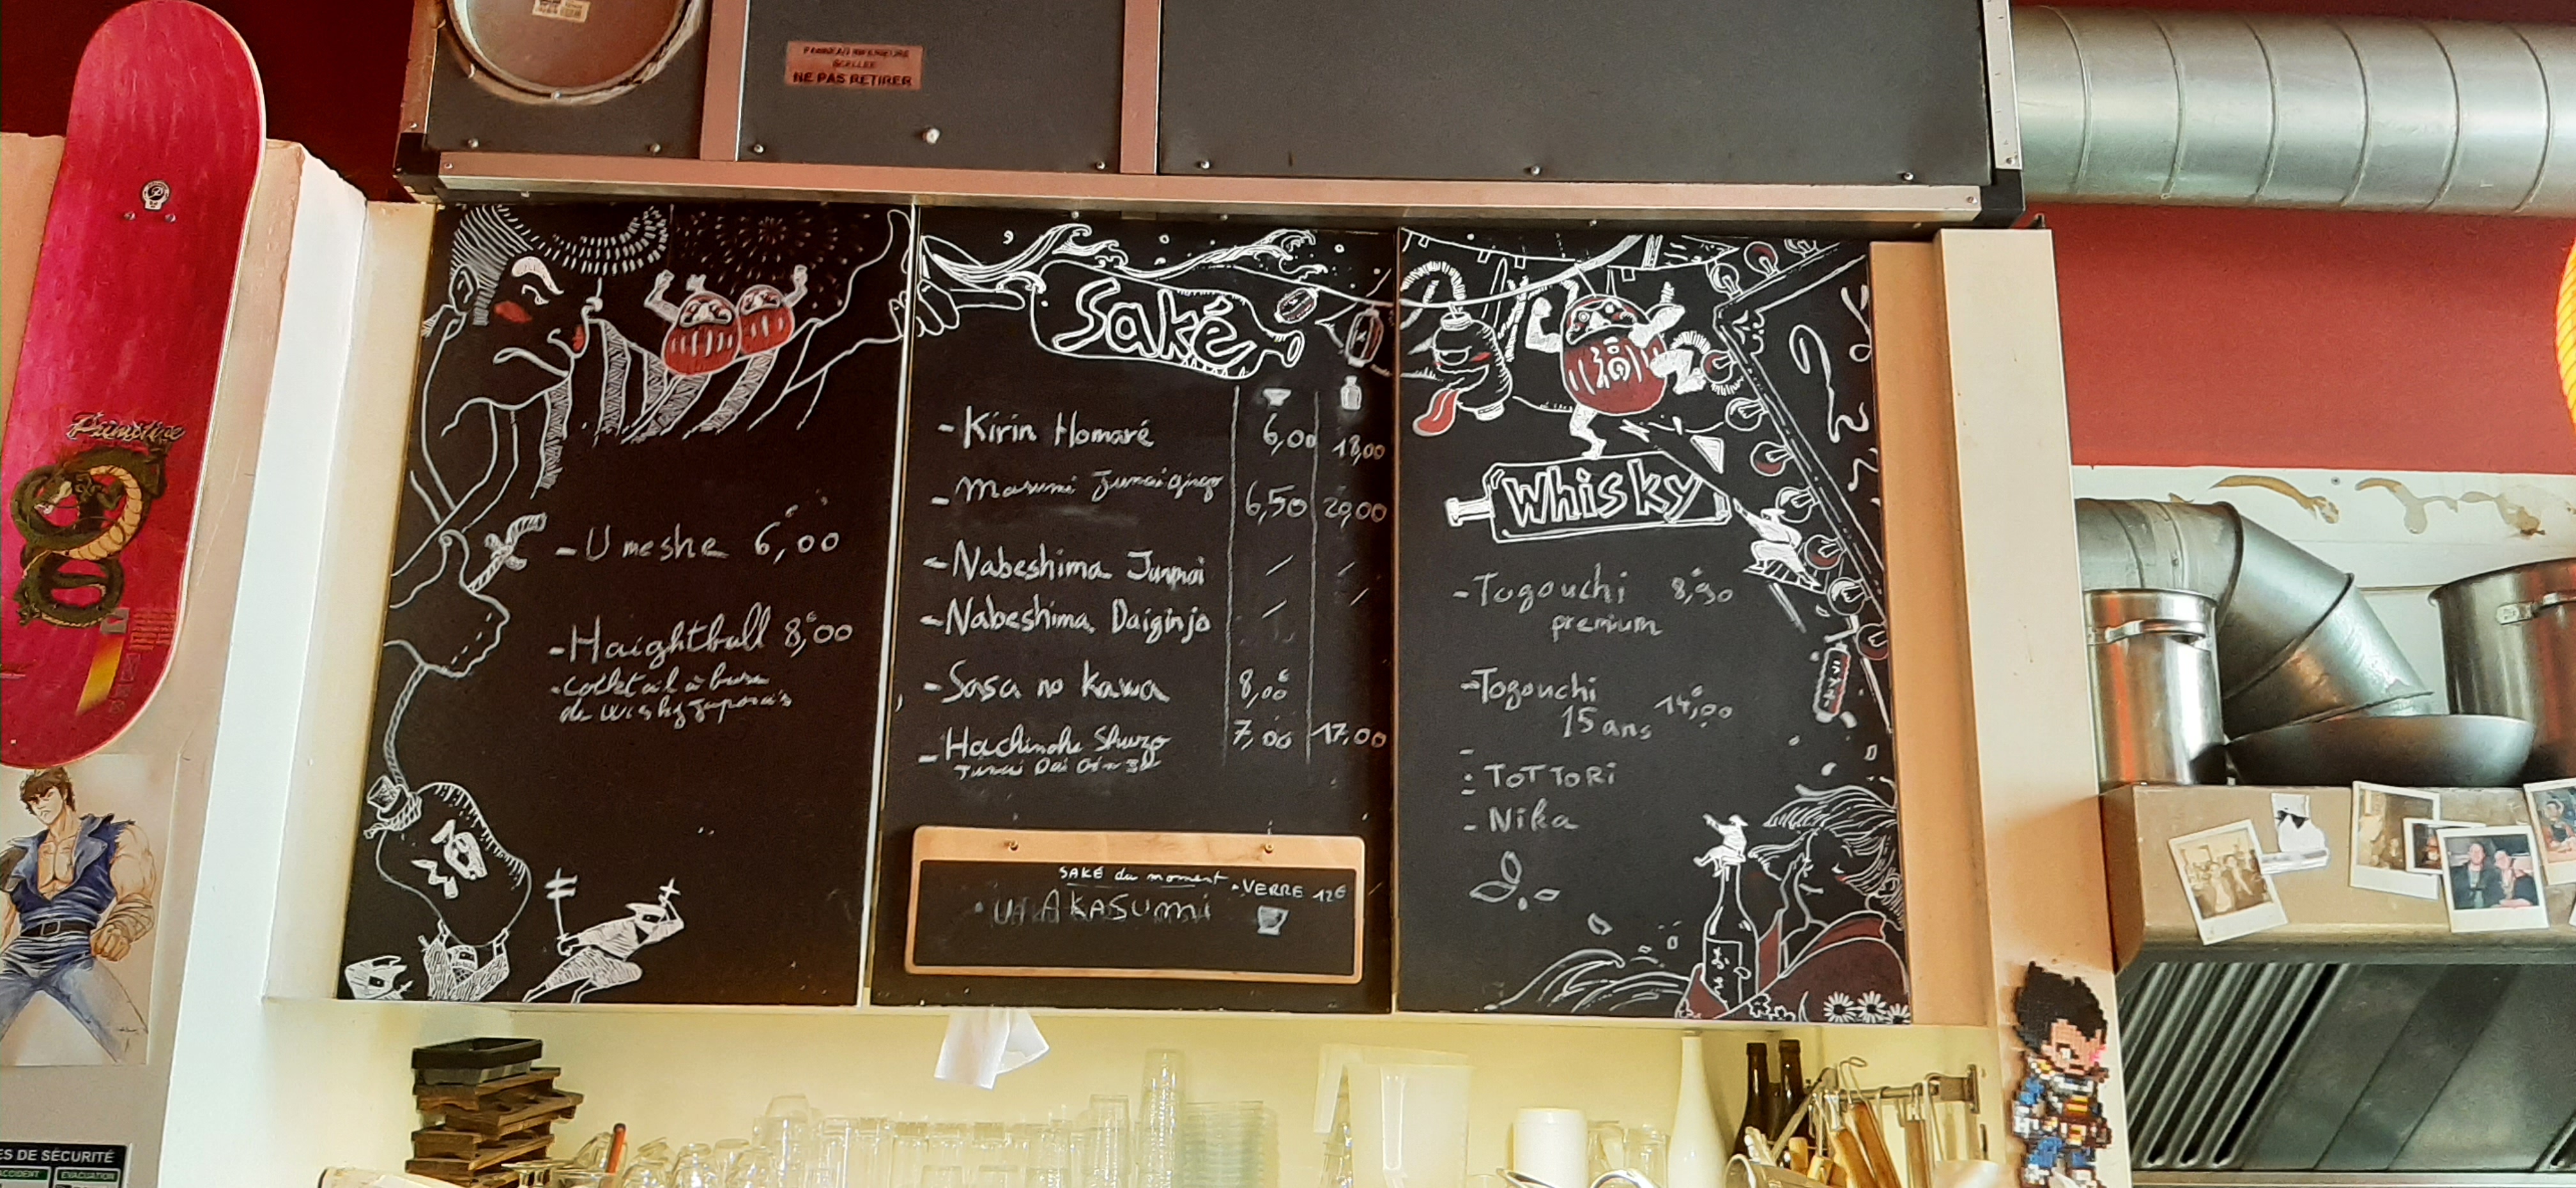 NE PAS RETIRER
Primitive
- Umeshe 6,00
- Haightball 8,00
. cocktail à base
de wisky japonais
Saké
- Kirin Homaré 6,00 18,00
- Masumi Junaiginjo 6,50 20,00
- Nabeshima Junmai / /
- Nabeshima Daiginjo / /
- Sasa no kawa 8,00
- Hachinohe Shuzo 7,00 17,00
SAKÉ du moment
• VERRE 12€
AKASUMI
Whisky
- Togouchi 8,90
premium
- Togouchi
15 ans 14,00
- TOTTORI
- Nika
ES DE SÉCURITÉ
ACCIDENT EVACUATION